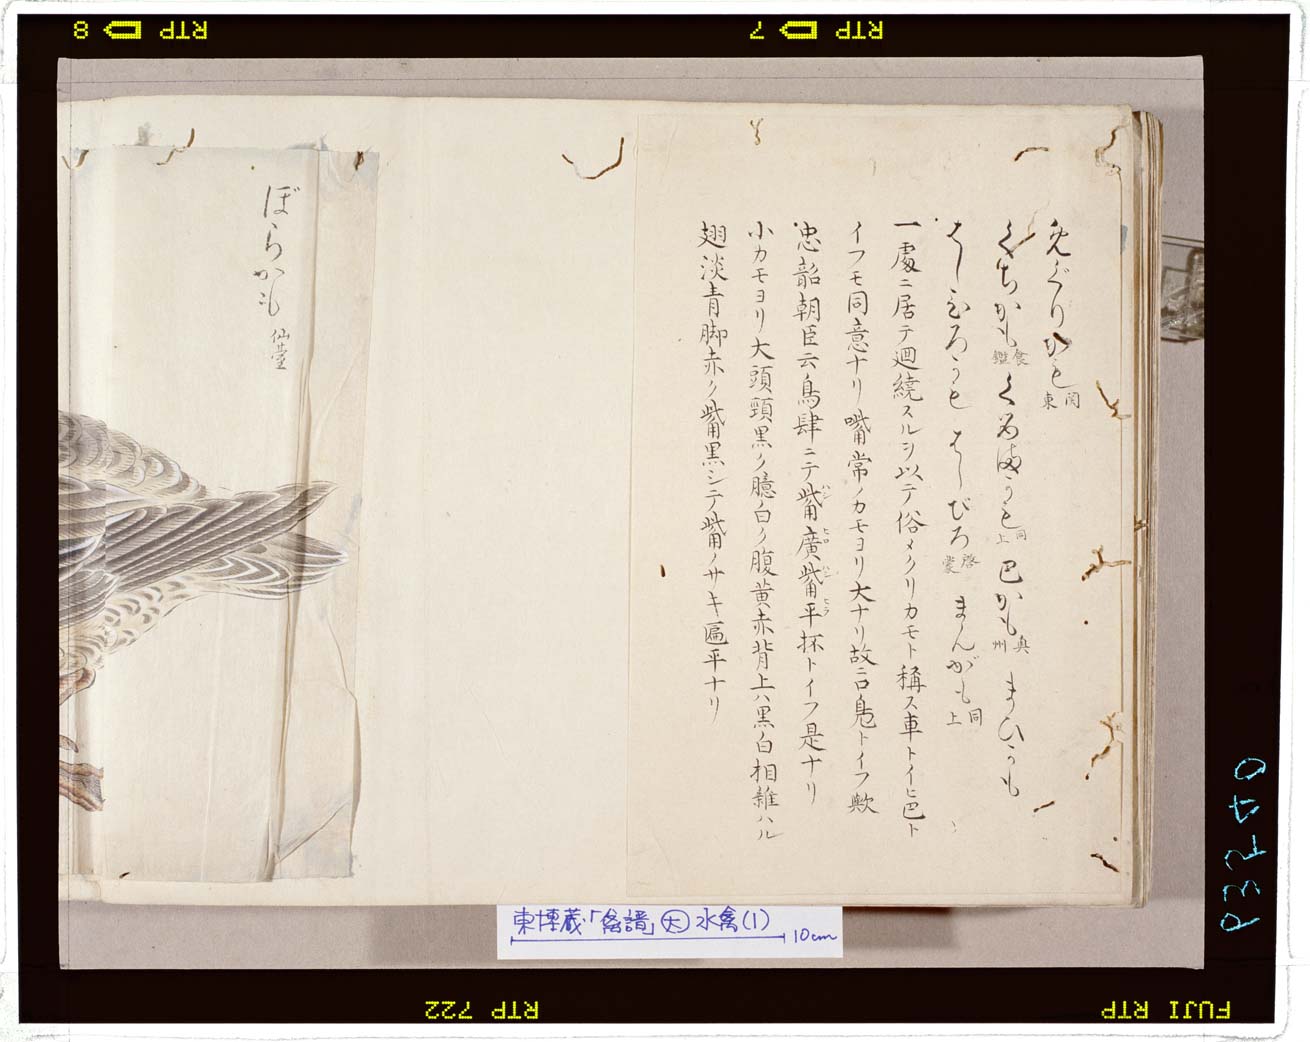 めぐりかも 関東
くちかも 食鑑 くるまかも 同上 巴かも 奥州 まひかも
はしひろかも はしびろ 啓蒙 まんがも 同上
一處ニ居テ廻繞スルヲ以テ俗メクリカモト稱ス車トイヒ巴ト
イフモ同意ナリ嘴常ノカモヨリ大ナリ故ニ口鳬トイフ歟
忠韶朝臣云鳥肆ニテ觜廣觜平抔トイフ是ナリ
ハシヒロハシヒラ
小カモヨリ大頭頸黒ク臆白ク腹黄赤背上ハ黒白相雜ハル
翅淡青脚赤ク觜黒シテ觜ノサキ匾平ナリ
ぼらかも 仙臺
東博蔵「禽譜」大 水禽(1)
10cm
8 RTP
7 RTP
RTP 722
FUJI RTP